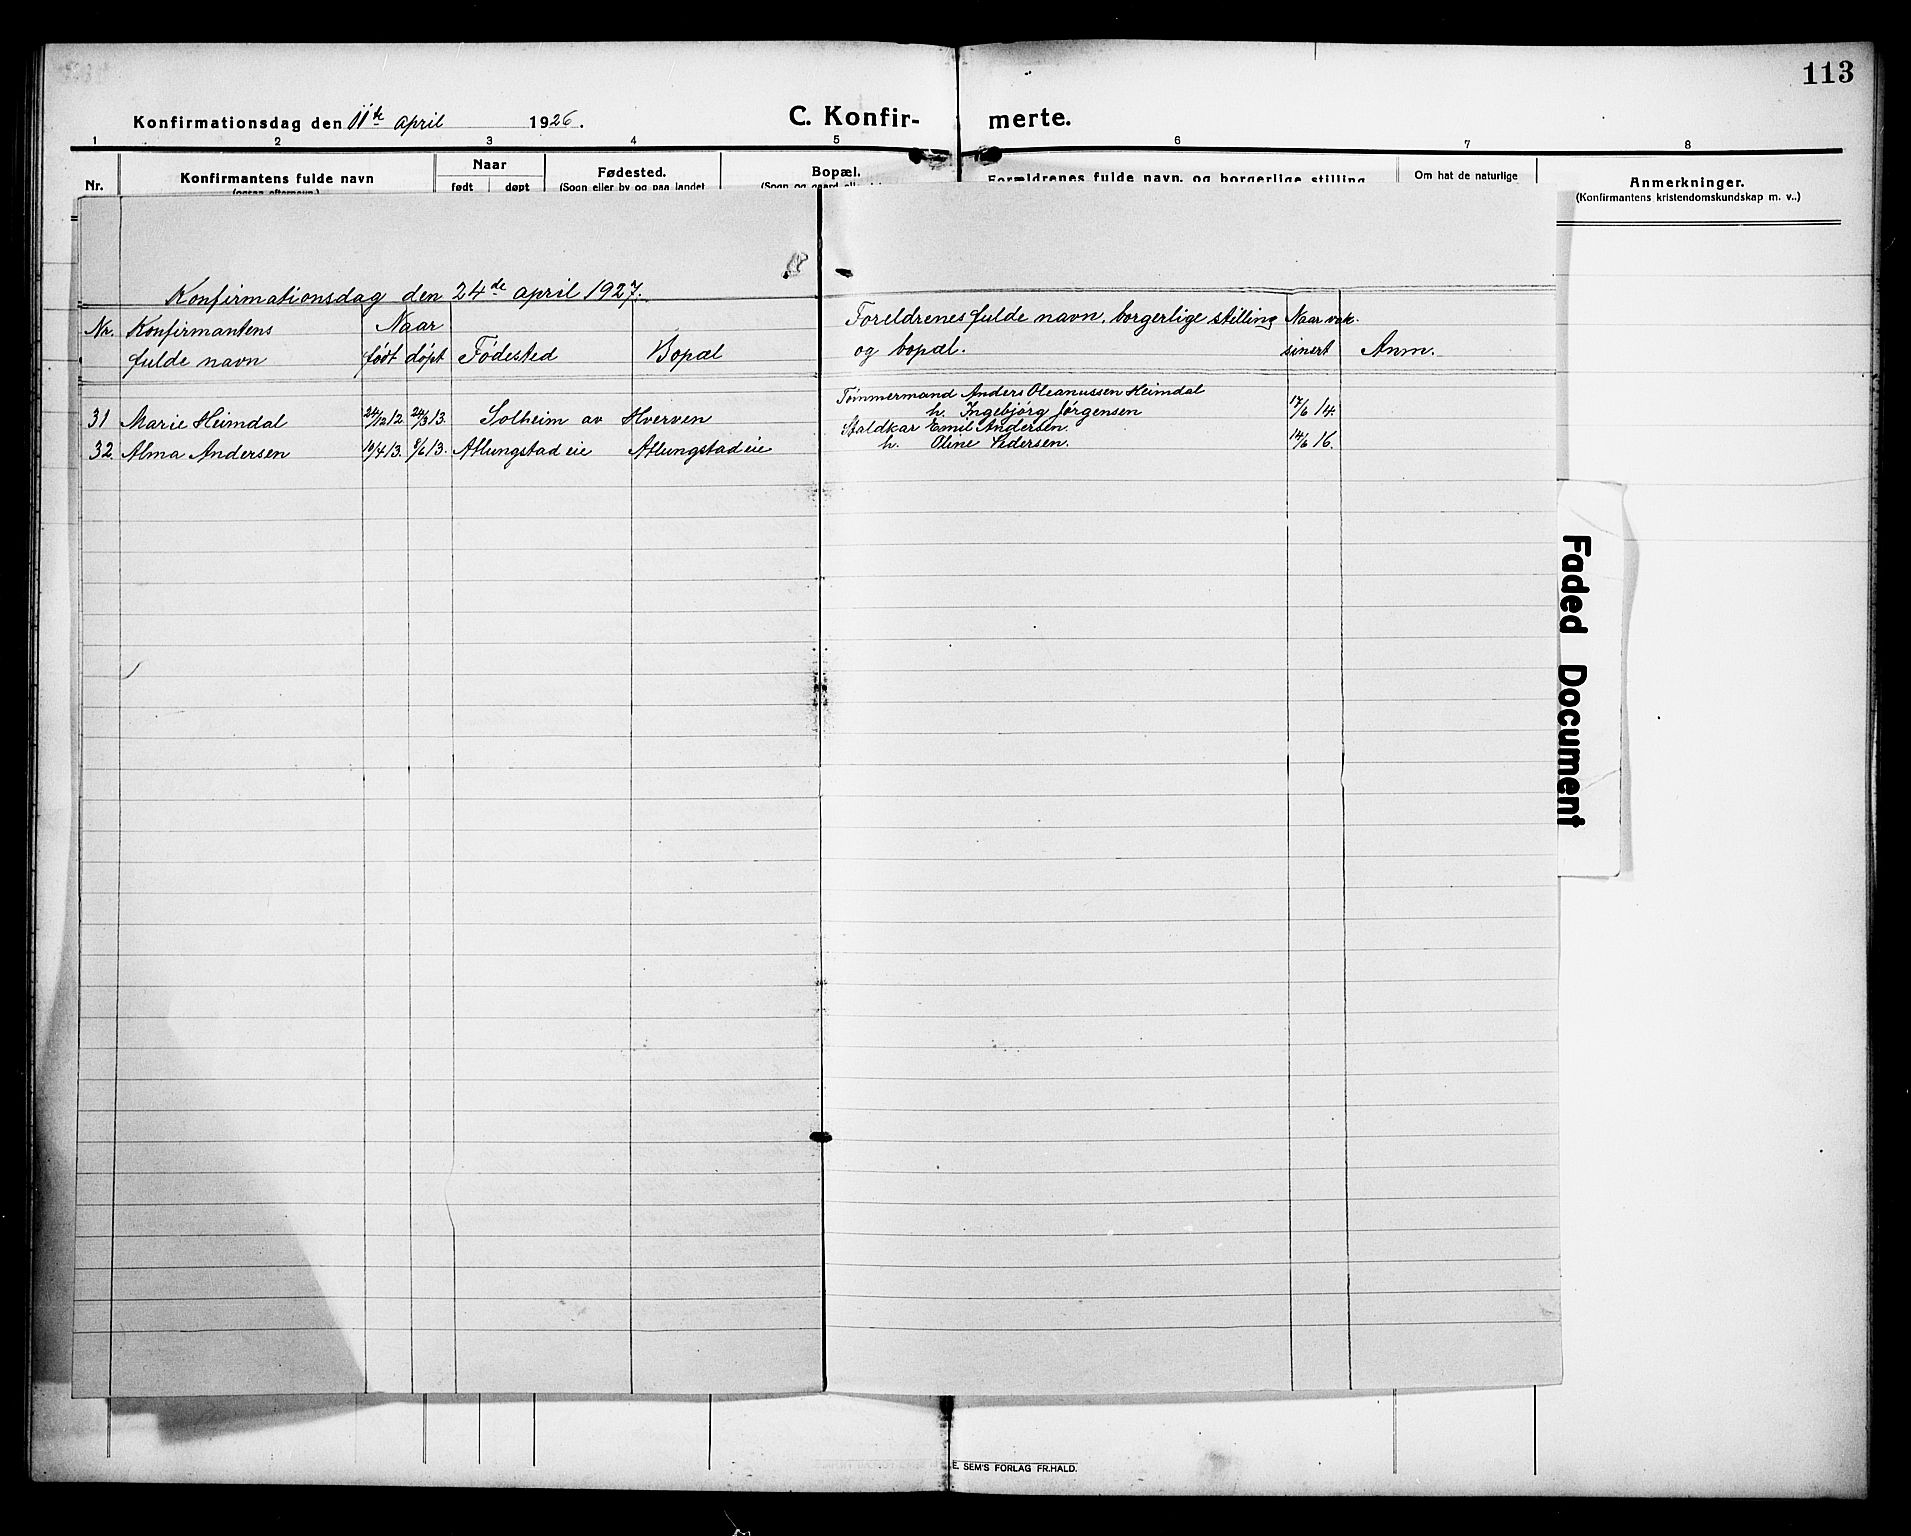 113
Konfirmationsdag den 11te april 1926.
C. Konfir- merte.
1 2 3 4 5 6 7 8
Nr.
Konfirmantens fulde navn
(ogsaa efternavn.)
Naar
født døpt
Fødested.
(Sogn eller by og paa landet
Bopæl.
(Sogn og gaard
Forældrenes fulde navn, og borgerlige stilling
Om hat de naturlige
Anmerkninger.
(Konfirmantens kristendomskundskap m. v..)
Konfirmationsdag den 24de april 1927.
Nr. Konfirmantens fulde navn
Naar
født døpt
Fødested
Bopæl
Foreldrenes fulde navn, borgerlige stilling
og bopæl.
Naar vak-
sinert
Anm.
31 Marie Heimdal 24/12 12. 24/3 13. Solheim av Hverven
Tømmermand Anders Oleanussen Heimdal
h. Ingebjørg Jørgensen
17/6 14.
32. Alma Andersen 19/4 13. 8/6 13. Atlungstad eie Atlungstad eie
Staldkar Emil Andersen
h. Oline Pedersen.
14/6 16.
Faded Document
E. SEM'S FORLAG FR.HALD.